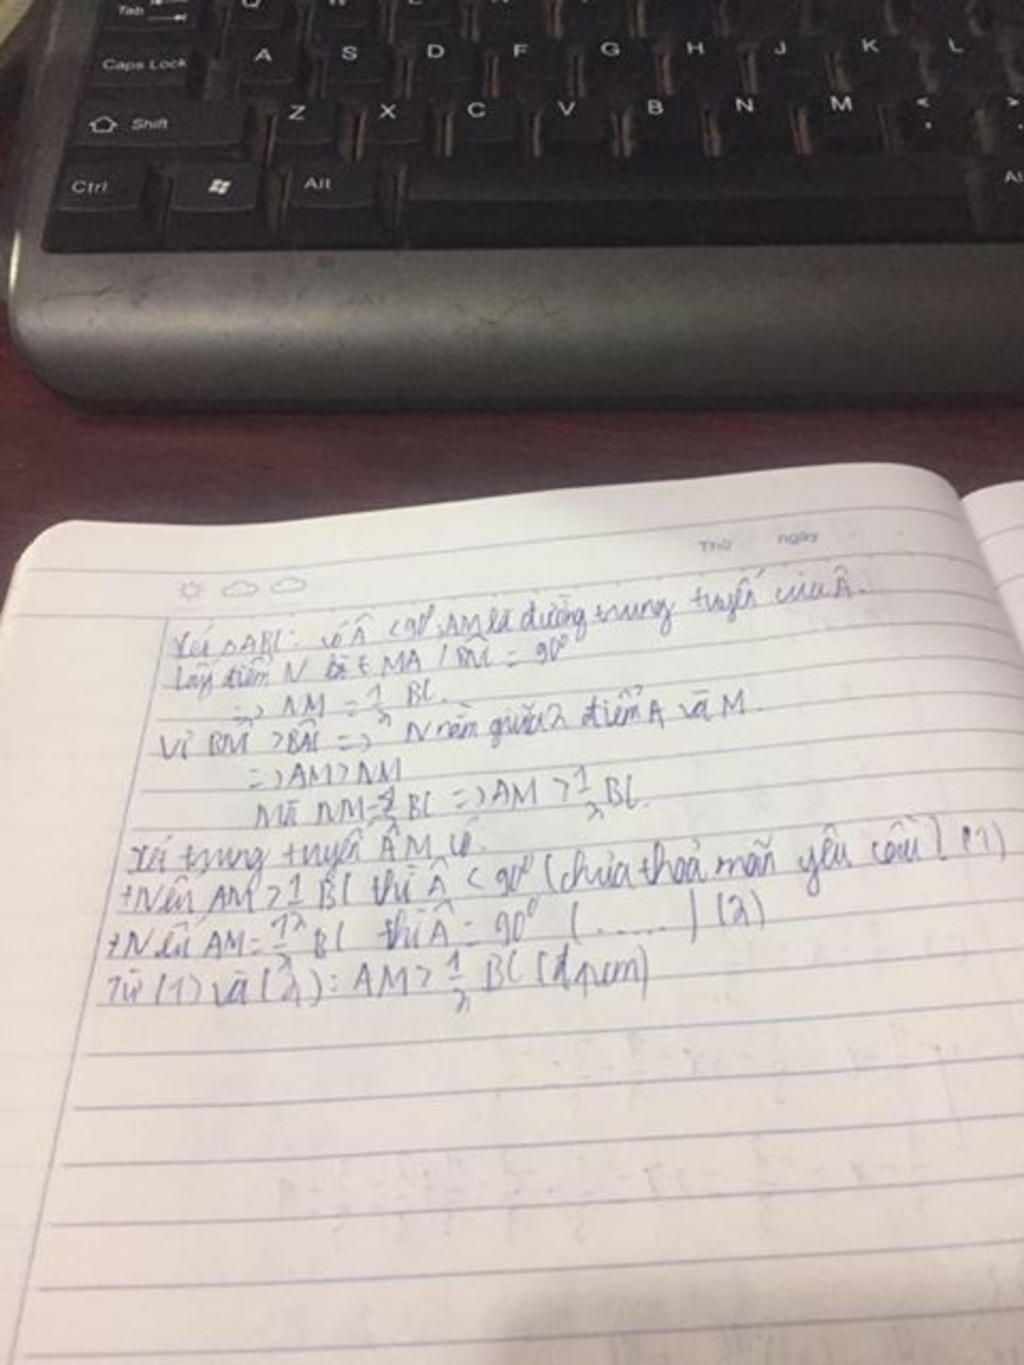 Tab
A S D F G H J K L
Caps Lock
Z X C V B N M < >
Shift
Ctrl Alt
Thứ ngày
Xét ΔABC: có Â < 90°, AM là đường trung tuyến của Â.
Lấy điểm N MA / = 90°
=> NM = 1/2 BC.
Vì > BÂC => N nằm giữa 2 điểm A và M.
=> AM > NM
Mà NM = 1/2 BC => AM > 1/2 BC.
Xét trung tuyến ÂM có.
+ Nếu AM > 1/2 BC thì Â < 90° (chưa thoả mãn yêu cầu) (1)
+ Nếu AM = 1/2 BC thì Â = 90° (......) (2)
Từ (1) và (2): AM > 1/2 BC (đpcm)